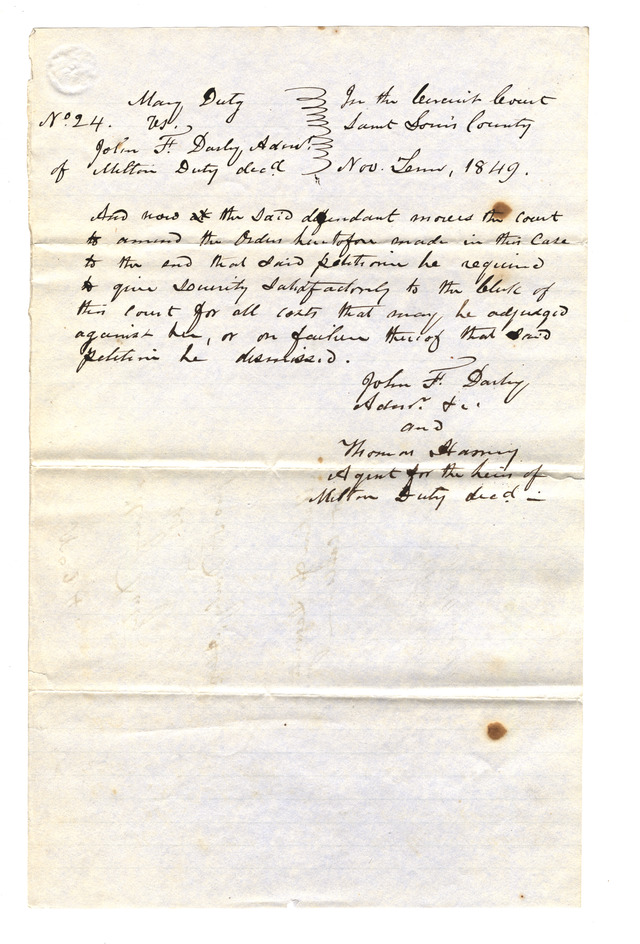 Mary Duty
In the Circuit Court
No. 24. vs.
Saint Louis County
John F. Darby, Admr.
of Milton Duty decd
Nov. Term, 1849.
And now the said defendant moves the court
to amend the Order heretofore made in this Case
to the end that said petitioner be required
to give security satisfactorily to the Clerk of
this Court for all costs that may be adjudged
against her, or on failure thereof that said
petition be dismissed.
John F. Darby
Admr. &c.
and
Thomas
Agent for the heirs of
Milton Duty decd